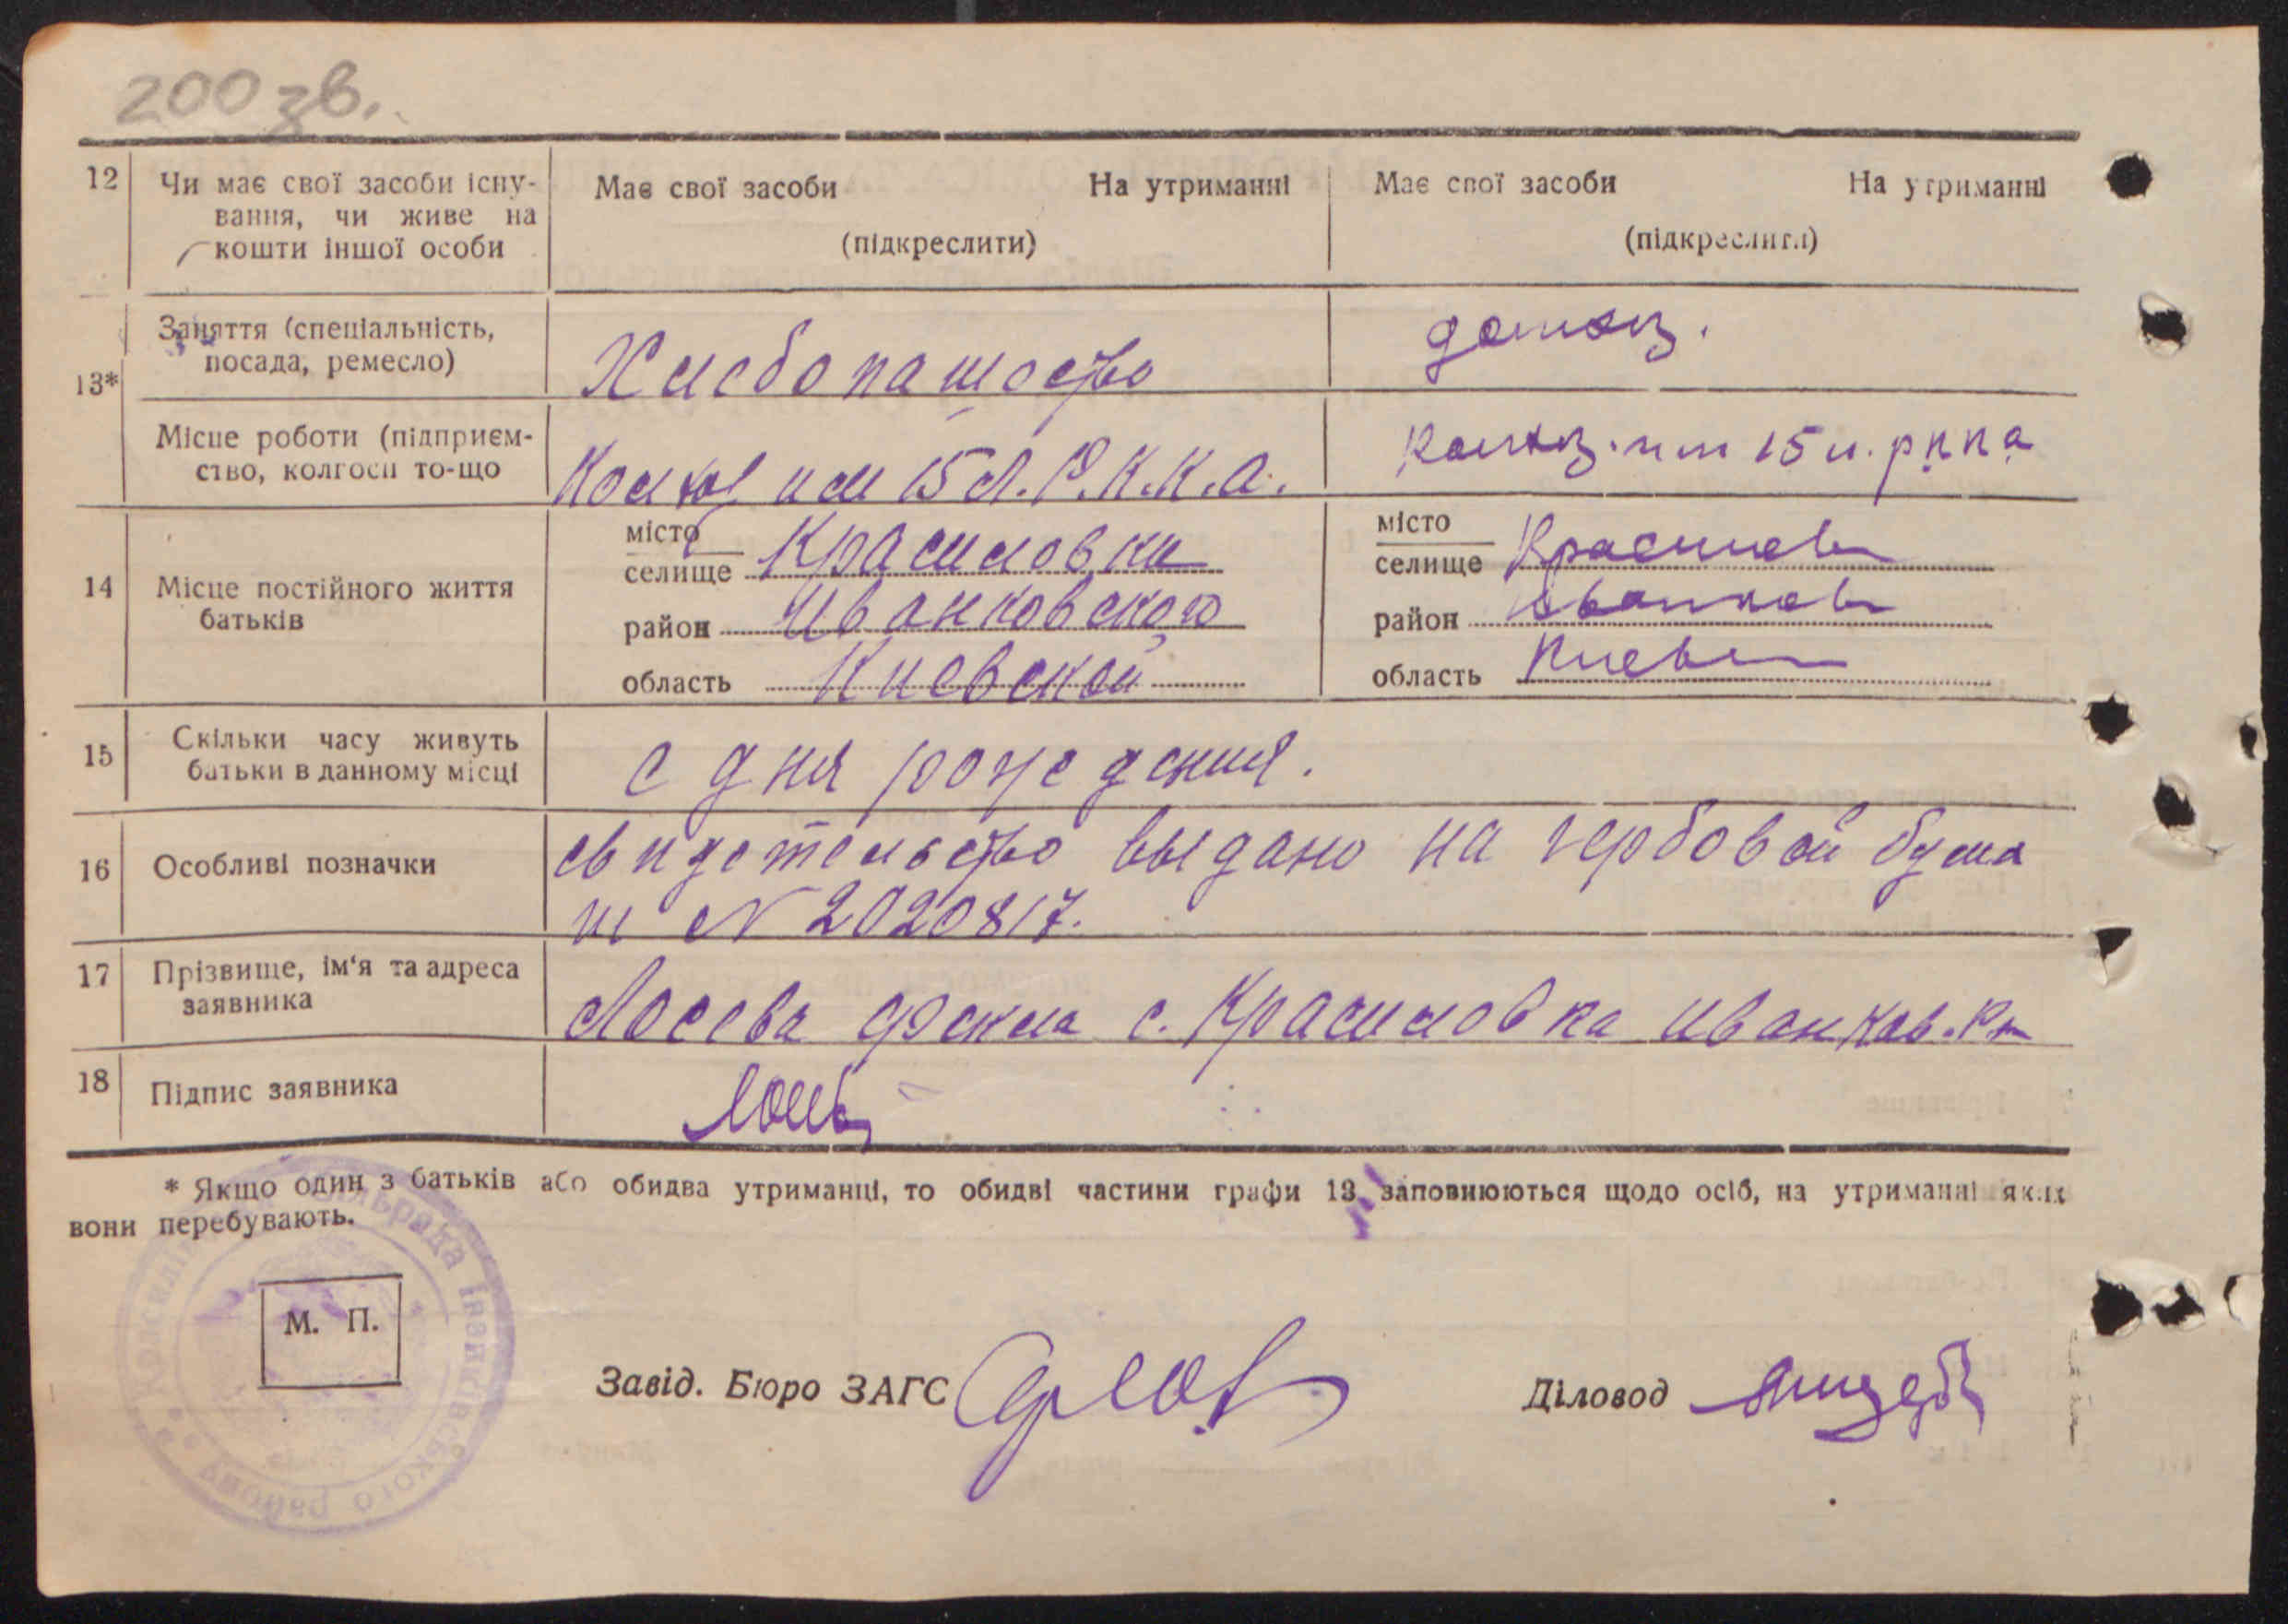 200 зв.
12 Чи має свої засоби існу- Має свої засоби На утриманні Має свої засоби На утриманні
вання, чи живе на
кошти іншої особи (підкреслити) (підкреслити)
13* Заняття (спеціальність,
посада, ремесло) Хлебопашество домхоз.
Місце роботи (підприєм-
ство, колгосп то-що Колхоз им 15 л. Р.К.К.А. Колхоз. им 15 л. рккa
14 Місце постійного життя
батьків
місто
селище Красиловки
район Иванковского
область Киевской
місто
селище
район
область Киевск
15 Скільки часу живуть
батьки в данному місці с дня рождения.
16 Особливі позначки свидетельство выдано на гербовой бума
ги N 2020817.
17 Прізвище, ім'я та адреса
заявника Лосева Фекла с. Красиловка Иванков. Р-н
18 Підпис заявника
* Якщо один з батьків або обидва утриманці, то обидві частини графи 13 заповнюються щодо осіб, на утриманні яких
вони перебувають.
сільрада Іванківського району
М. П.
Завід. Бюро ЗАГС
Діловод